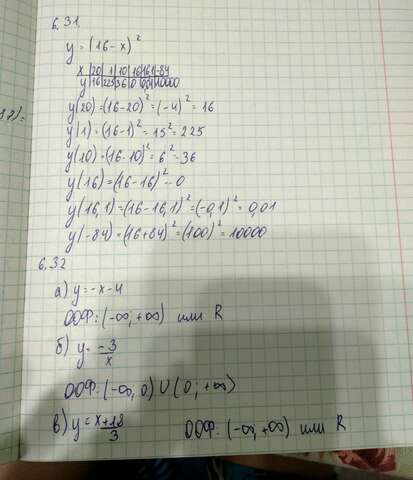 6.31.
y = (16-x)²
x 20 1 10 16 16,1 -84
y 16 225 36 0 0,01 10000
y(20) = (16-20)² = (-4)² = 16
y(1) = (16-1)² = 15² = 225
y(10) = (16-10)² = 6² = 36
y(16) = (16-16)² = 0
y(16,1) = (16-16,1)² = (-0,1)² = 0,01
y(-84) = (16+84)² = (100)² = 10000
6.32
а) y = -x-4
ООФ: (-∞, +∞) или R
б) y = -3/x
ООФ: (-∞, 0) U (0; +∞)
в) y = x+18/3 ООФ: (-∞; +∞) или R